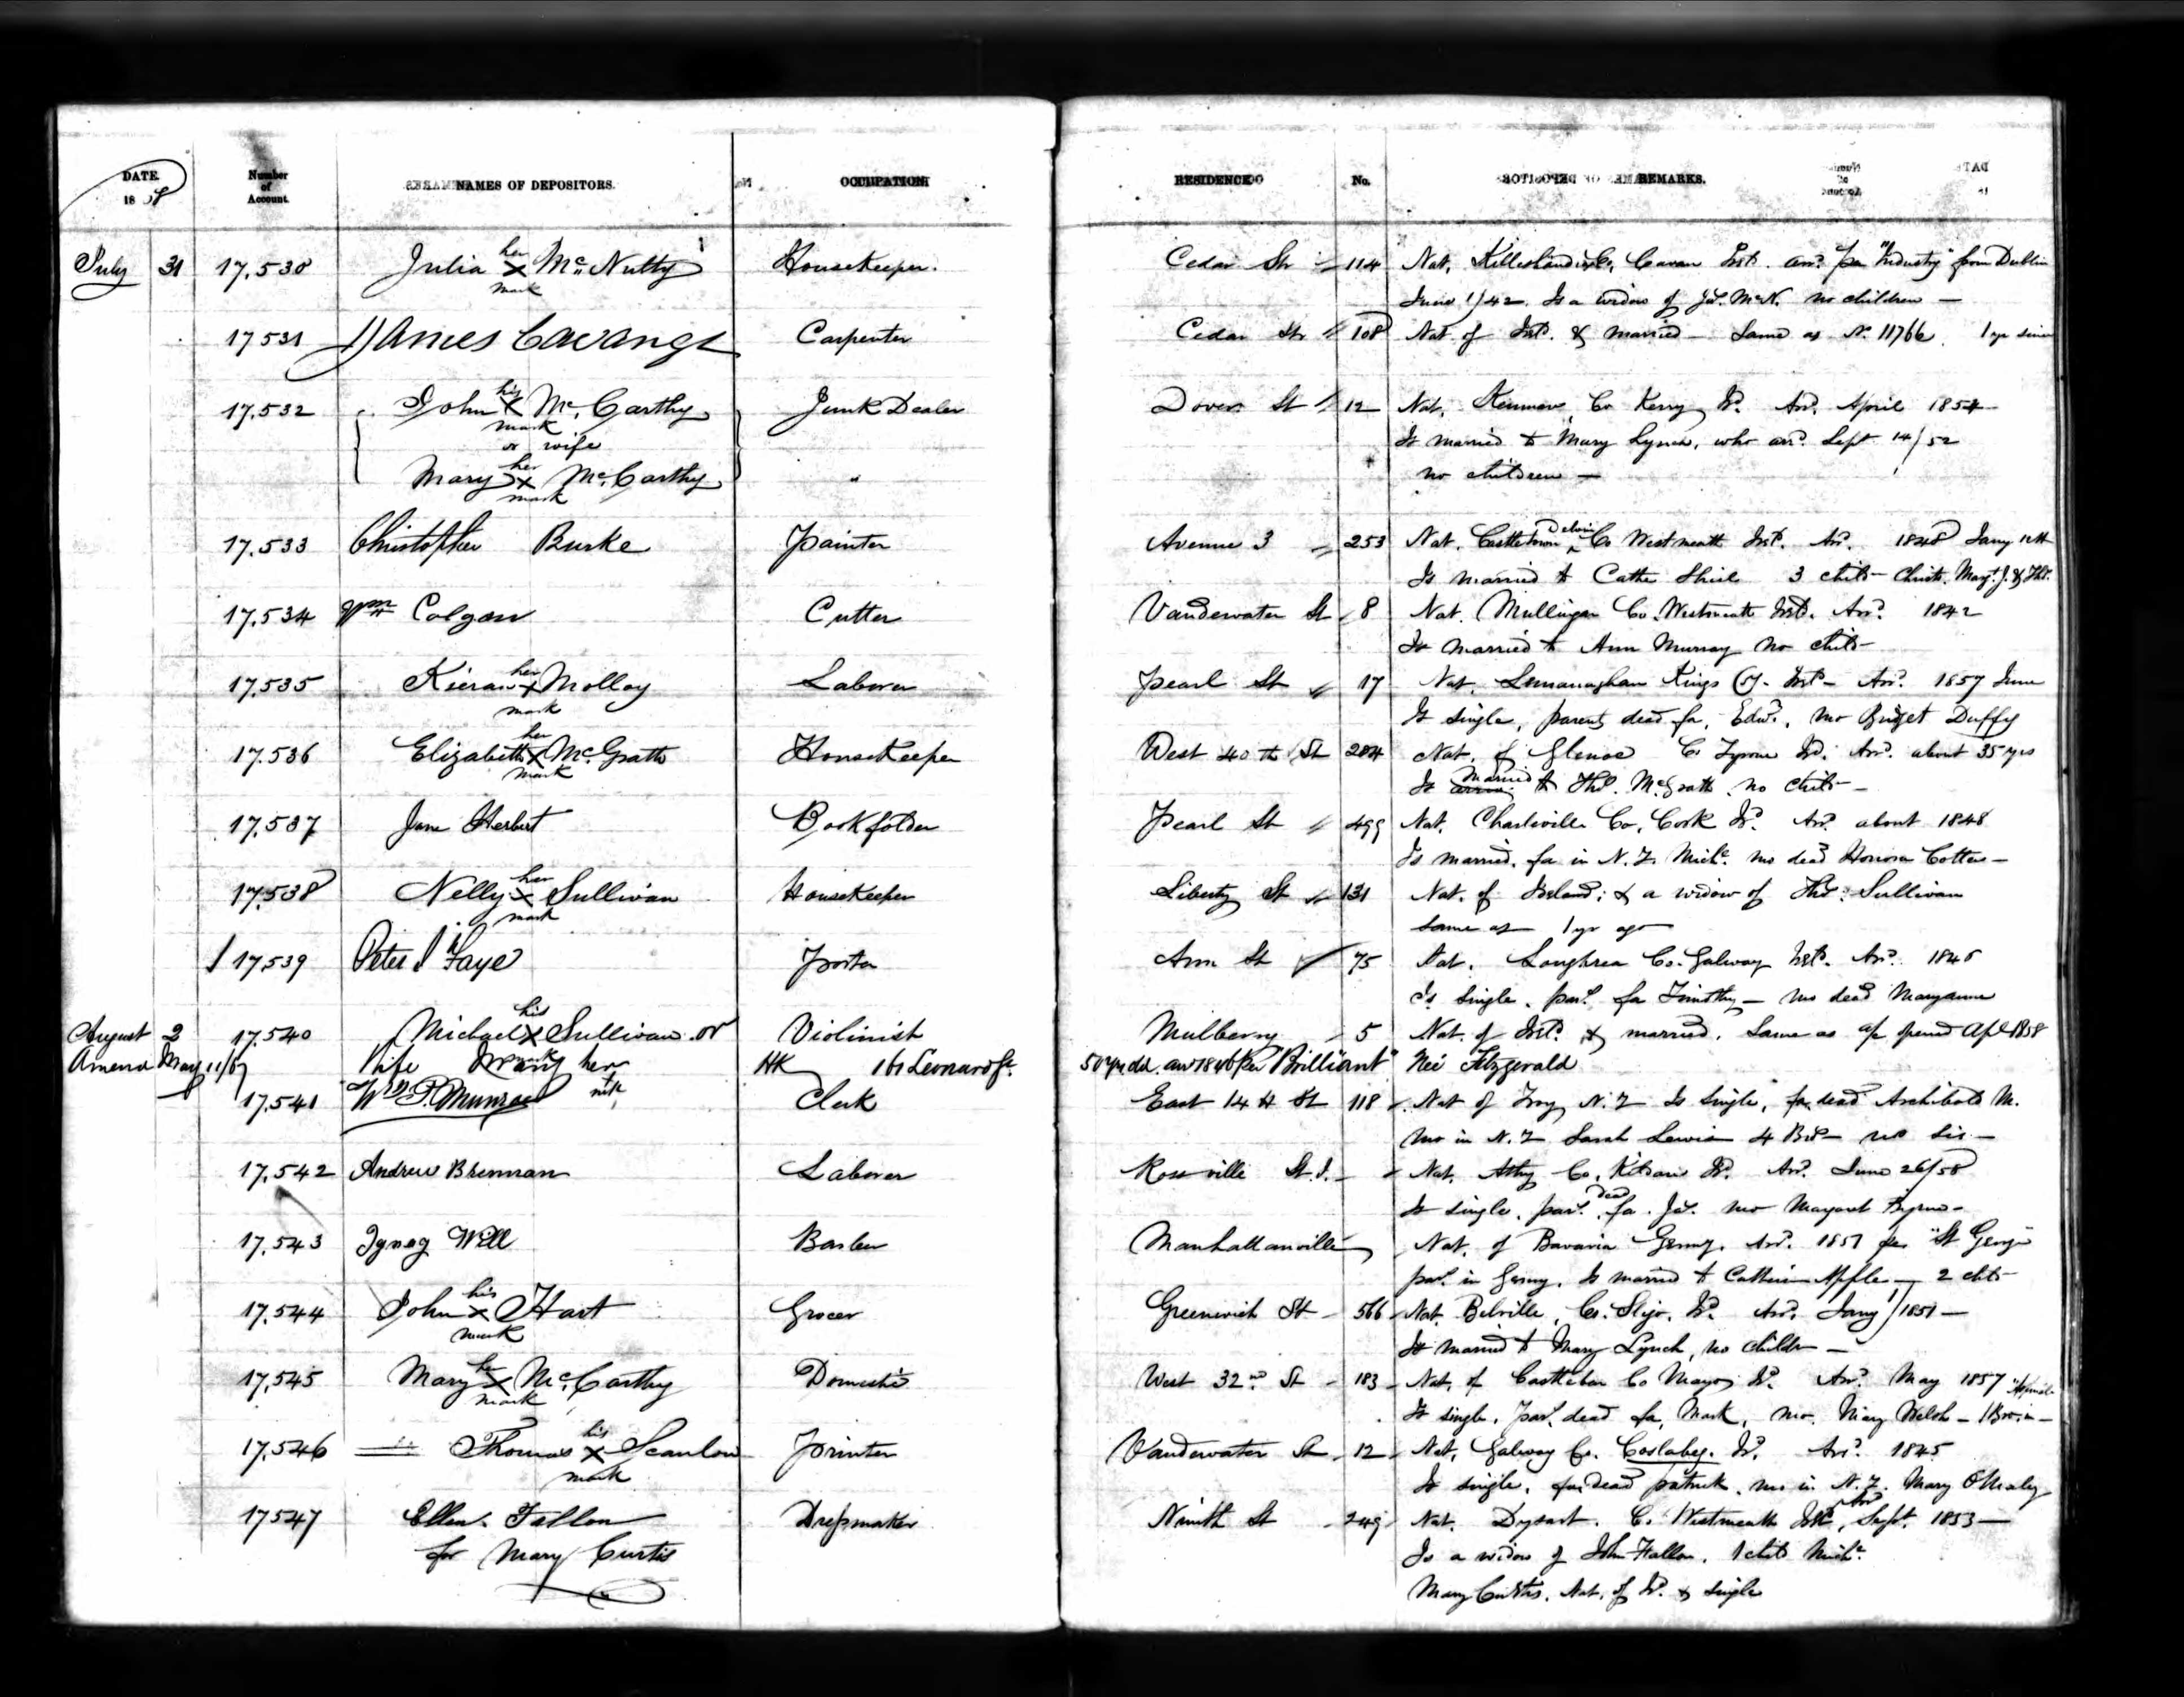 DATE. Number of Account. NAMES OF DEPOSITORS. OCCUPATION. RESIDENCE No. REMARKS.
1858
July 31 17.530 Julia her x mark McNulty Housekeeper. Cedar St 114 Nat. Co, Cavan Ird. arr. per "Industry" from Dublin
June 1/42. Is a widow of Jas. McN. no children —
17531 James Cavanagh Carpenter Cedar St 108 Nat. of Ird. & married — Same as No. 11766. 1 yr since
17.532 John his x mark McCarthy Junk Dealer Dover St 12 Nat. Kenmare, Co Kerry Id. Arr. April 1854
or wife Is married to Mary Lynch, who arr. Sept. 14/52
Mary her x mark McCarthy " no children —
17.533 Christopher Burke Painter Avenue 3 253 Nat. Castletown Delvin Co Westmeath Ird. Arr. 1848 Jany
Is married to Cathe Shiel 3 child — Christr. Margt. J. & Ths.
17.534 Wm Colgan Cutter Vandewater St 8 Nat. Mullingar Co. Westmeath Ird. Arr. 1842
Is married to Ann Murray no child —
17.535 Kieran her x mark Molloy Laborer Pearl St 17 Nat. Lemanaghan Kings Cy. Ird — Arr. 1857 June
Is single, parents dead fa. Edwd., mo Bridget Duffy
17.536 Elizabeth her x mark McGrath Housekeeper West 40th St 284 Nat. of Glenoe Co Tyrone Id. Arr. about 35 yrs
Is married to Ths. McGrath. no child —
17.537 Jane Herbert Bookfolder Pearl St 499 Nat. Charleville Co. Cork Id. Arr. about 1848
Is married. fa in N.Y. Michl. mo dead Honora Cotter —
17.538 Nelly her x mark Sullivan Housekeeper Liberty St 131 Nat. of Ireland; & a widow of Ths. Sullivan
same as 1 yr ago
17.539 Peter Faye Porter Ann St 75 Nat. Loughrea Co. Galway Ird. Arr.
Is single. par. fa Timothy — mo dead Maryanne
August 2 17.540 Michael his x mark Sullivan or Violinist Mulberry 5 Nat. of Ird. & married. Same as a/c opened Apl 1858
Amend May 11/67 Wife Mary her HK 161 Leonard St. 50 yrs old. arr 1846 per "Brilliant" Neé Fitzgerald
17.541 Wm P. Munroe Clerk East 14th St 118 Nat of Troy N.Y Is single, fa. dead Archibald M.
mo in N.Y Sarah Lewis 4 Bro — no sis —
17.542 Andrew Brennan Laborer Rossville St. I. Nat. Athy Co. Kildare Id. Arr. June 26/58
Is single. par. dead fa. Jas. mo Margaret Byrne —
17.543 Ignaz Will Barber Manhattanville Nat. of Bavaria Germy. Arr. 1851 per "St George"
par. in Germy. Is married to Catherine Apfle — 2 chd —
17.544 John his x mark Hart Grocer Greenwich St 566 Nat. Belville, Co. Sligo. Id. Arr. Jany 1/1851 —
Is married to Mary Lynch, no childn —
17.545 Mary her x mark McCarthy Domestic West 32nd St 183 Nat. of Castlebar Co Mayo Id. Arr. May 1857
Is single. Par. dead fa. Mark, mo. Mary Welsh — 1 Bro. in —
17.546 Thomas his x mark Scanlon Printer Vandewater St 12 Nat. Galway Co. Id. Arr. 1845
Is single. fa. dead Patrick. mo in N.Y. Mary O'Maley
17547 Ellen Fallon Dressmaker Ninth St 249 Nat. Dysart. Co. Westmeath Ird, Arr Sept. 1853 —
for Mary Curtis Is a widow of John Fallon. 1 child Michl.
Mary Curtis. Nat. of Id. & single